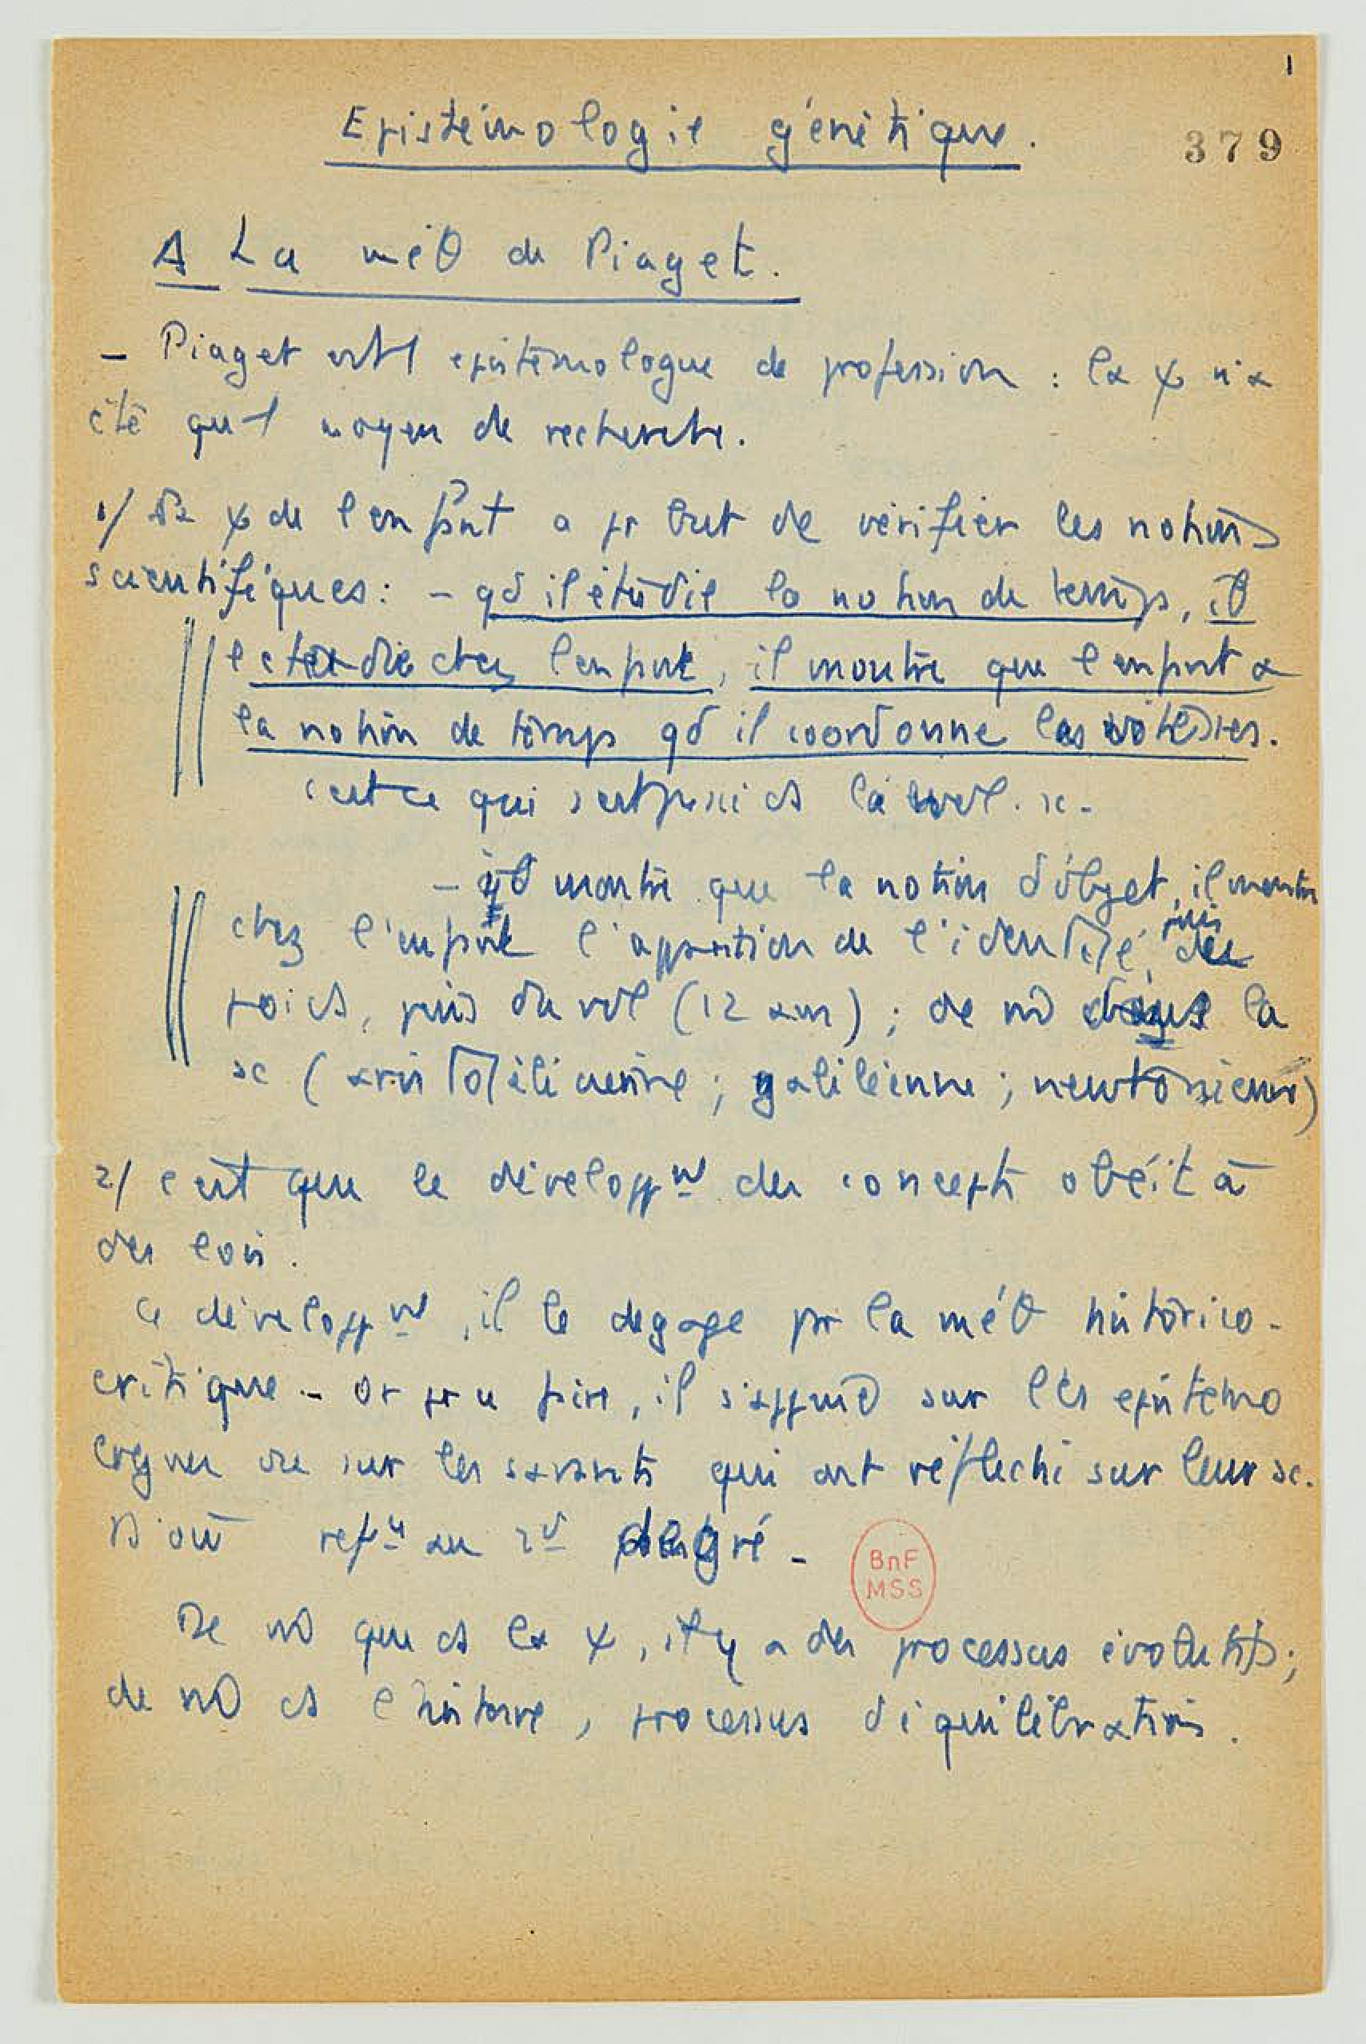 1
Epistémologie génétique.
379
A La méθ de Piaget.
– Piaget est 1 epistémologue de profession : la ψ n'a
été qu'1 moyen de recherche.
1/ Sa ψ de l'enfant a pr but de vérifier les notions
scientifiques : – qd il étudie la notion de temps, il
chez l'enfant, il montre que l'enfant a
la notion de temps qd il coordonne les vitesses.
c'est ce qui s'est passé ds
– il montre que la notion d'objet, il montre
chez l'enfant l'apparition de l'identité, puis du
poids, puis du vol (12 ans) ; de m̂ ds la
sc (aristotélicienne ; galiléenne ; newtonienne)
2/ c'est que le developpt des concepts obéit à
des lois.
Ce développt, il le degage par la méθ historico-
critique – or pr ce faire, il s'appuie sur les epistemo
logues ou sur les savants qui ont réfléchi sur leur sc.
D'où refn au 2d degré –
BnF
MSS
De m̂ que ds la ψ, il y a des processus évolutifs ;
de m̂ ds l'histoire, processus d'équilibration.